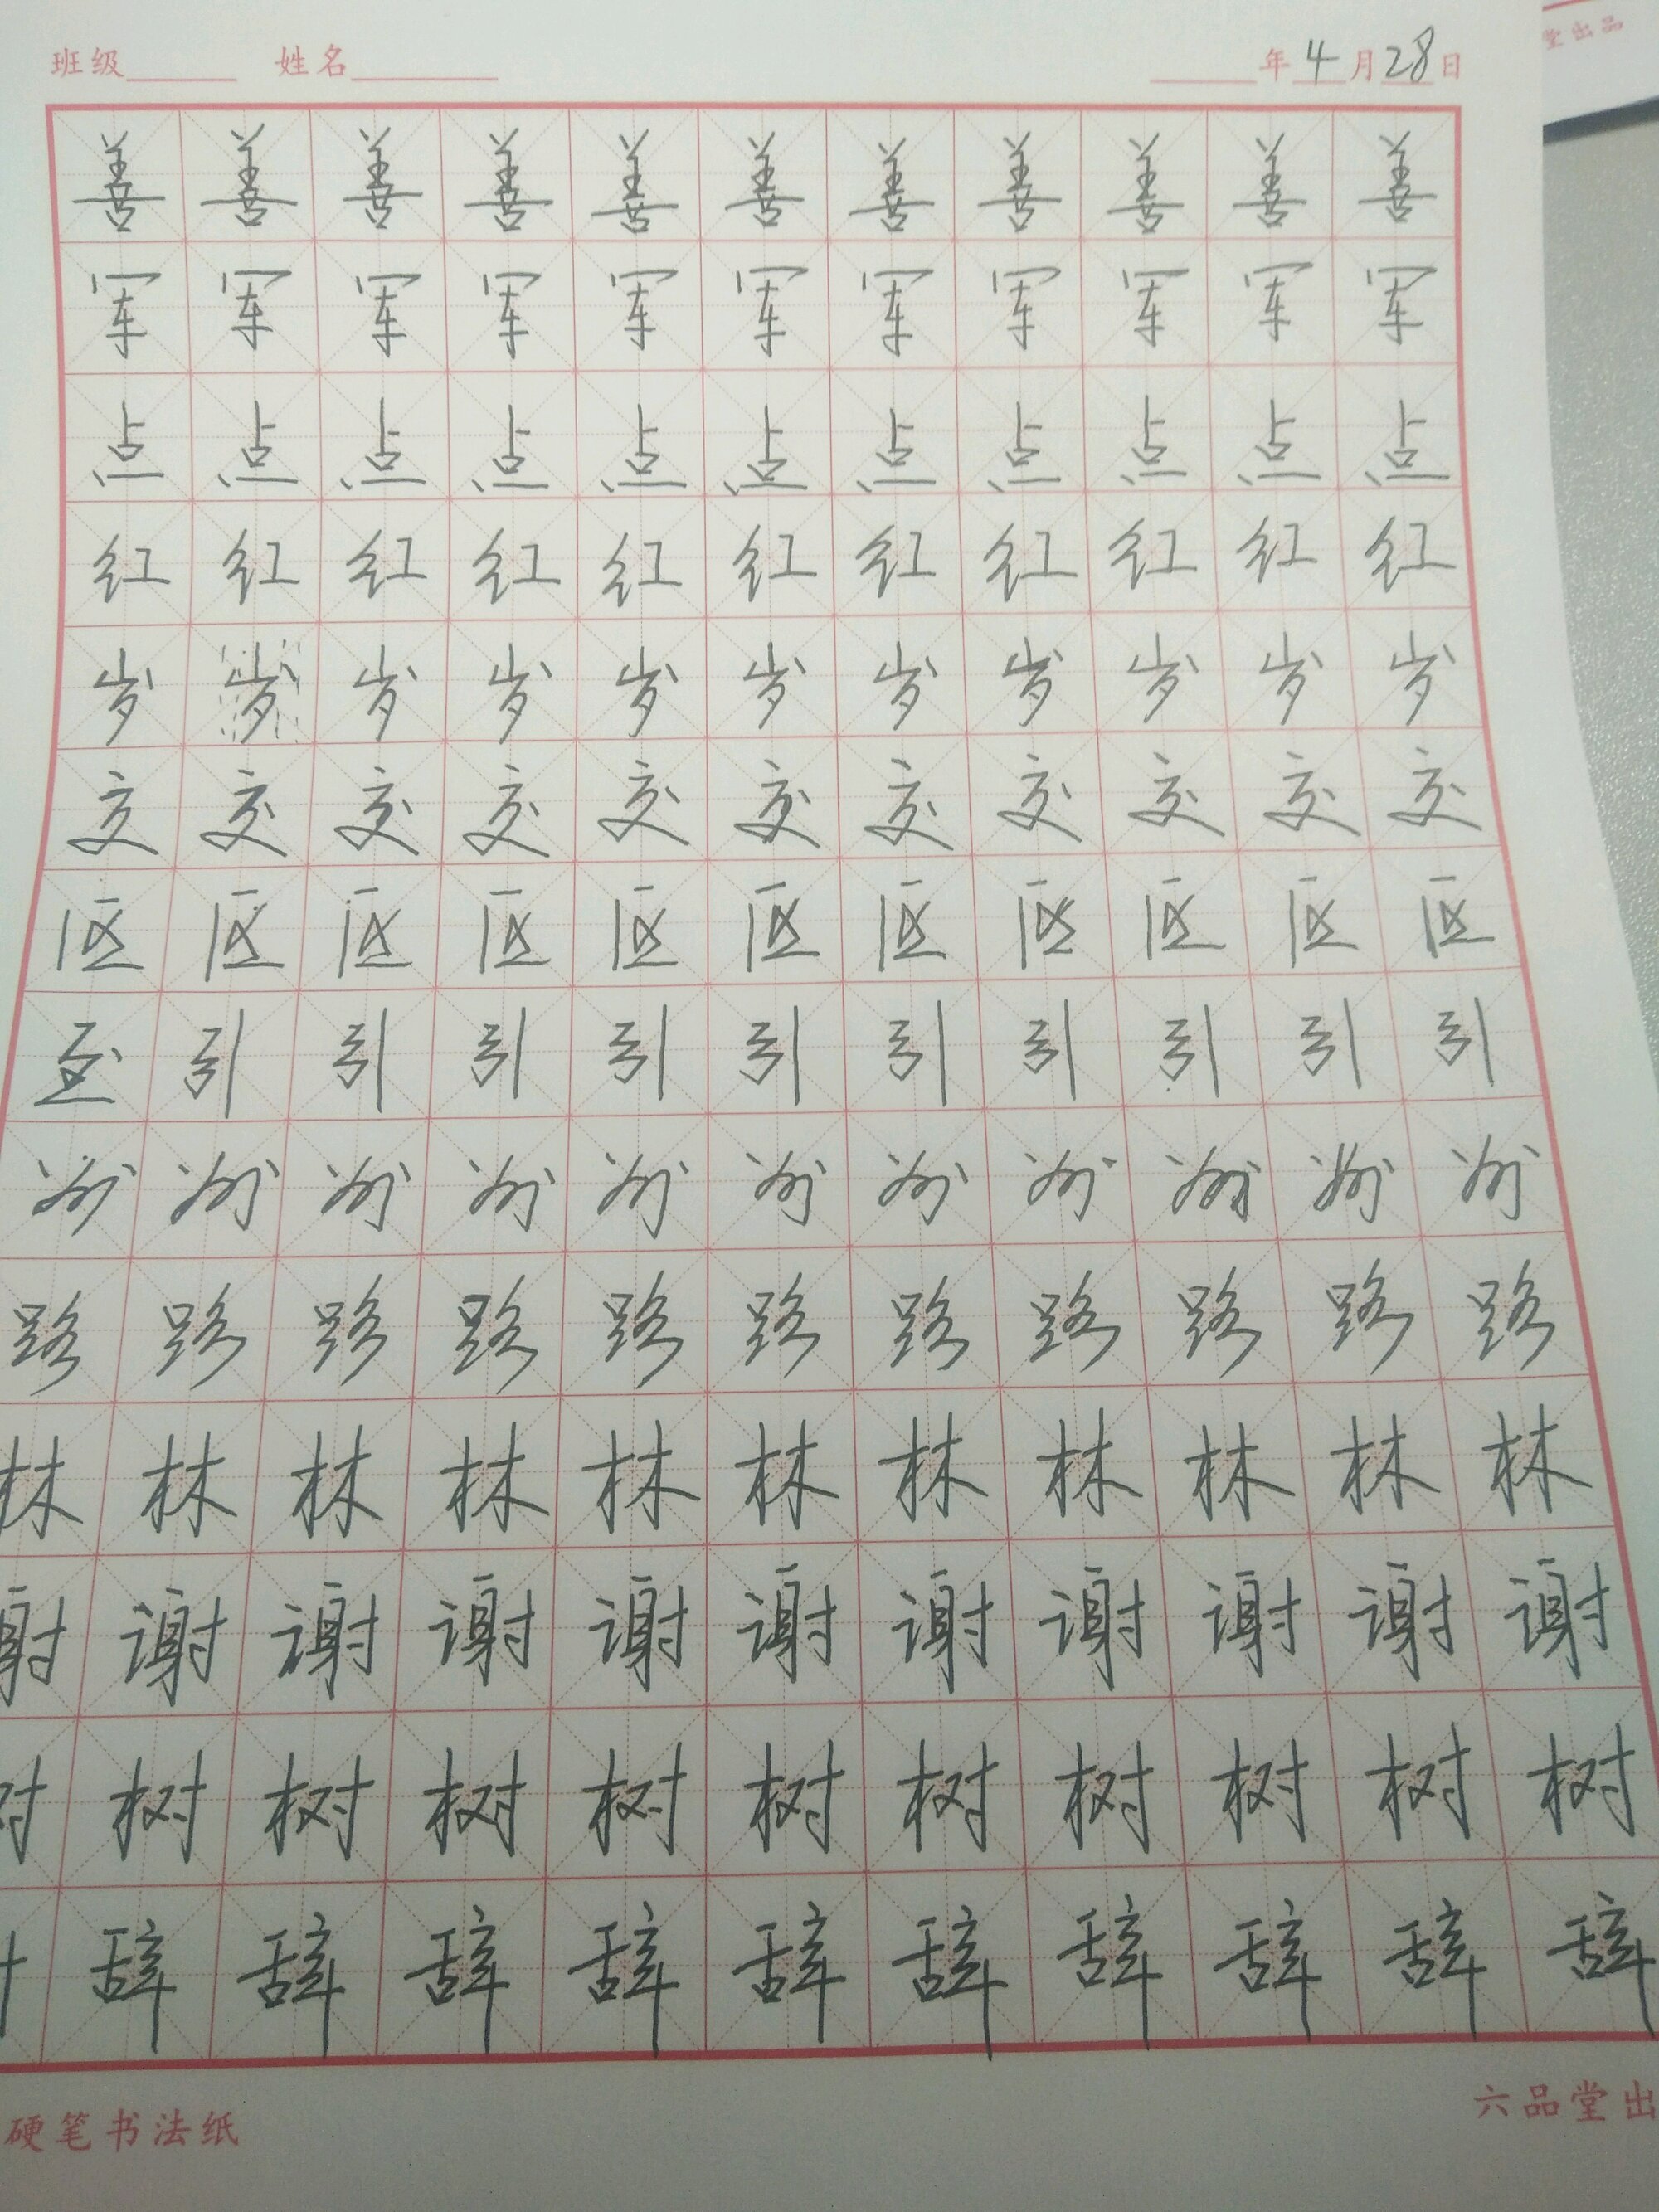 班级 姓名 年4月28日
堂出品
善善善善善善善善善善善
军军军军军军军军军军军
点点点点点点点点点点点
红红红红红红红红红红红
岁岁岁岁岁岁岁岁岁岁岁
交交交交交交交交交交交
区区区区区区区区区区区
引引引引引引引引引引
州州州州州州州州州州州
路路路路路路路路路路路
林林林林林林林林林林林
谢谢谢谢谢谢谢谢谢谢
树树树树树树树树树树
辞辞辞辞辞辞辞辞辞辞
硬笔书法纸 六品堂出